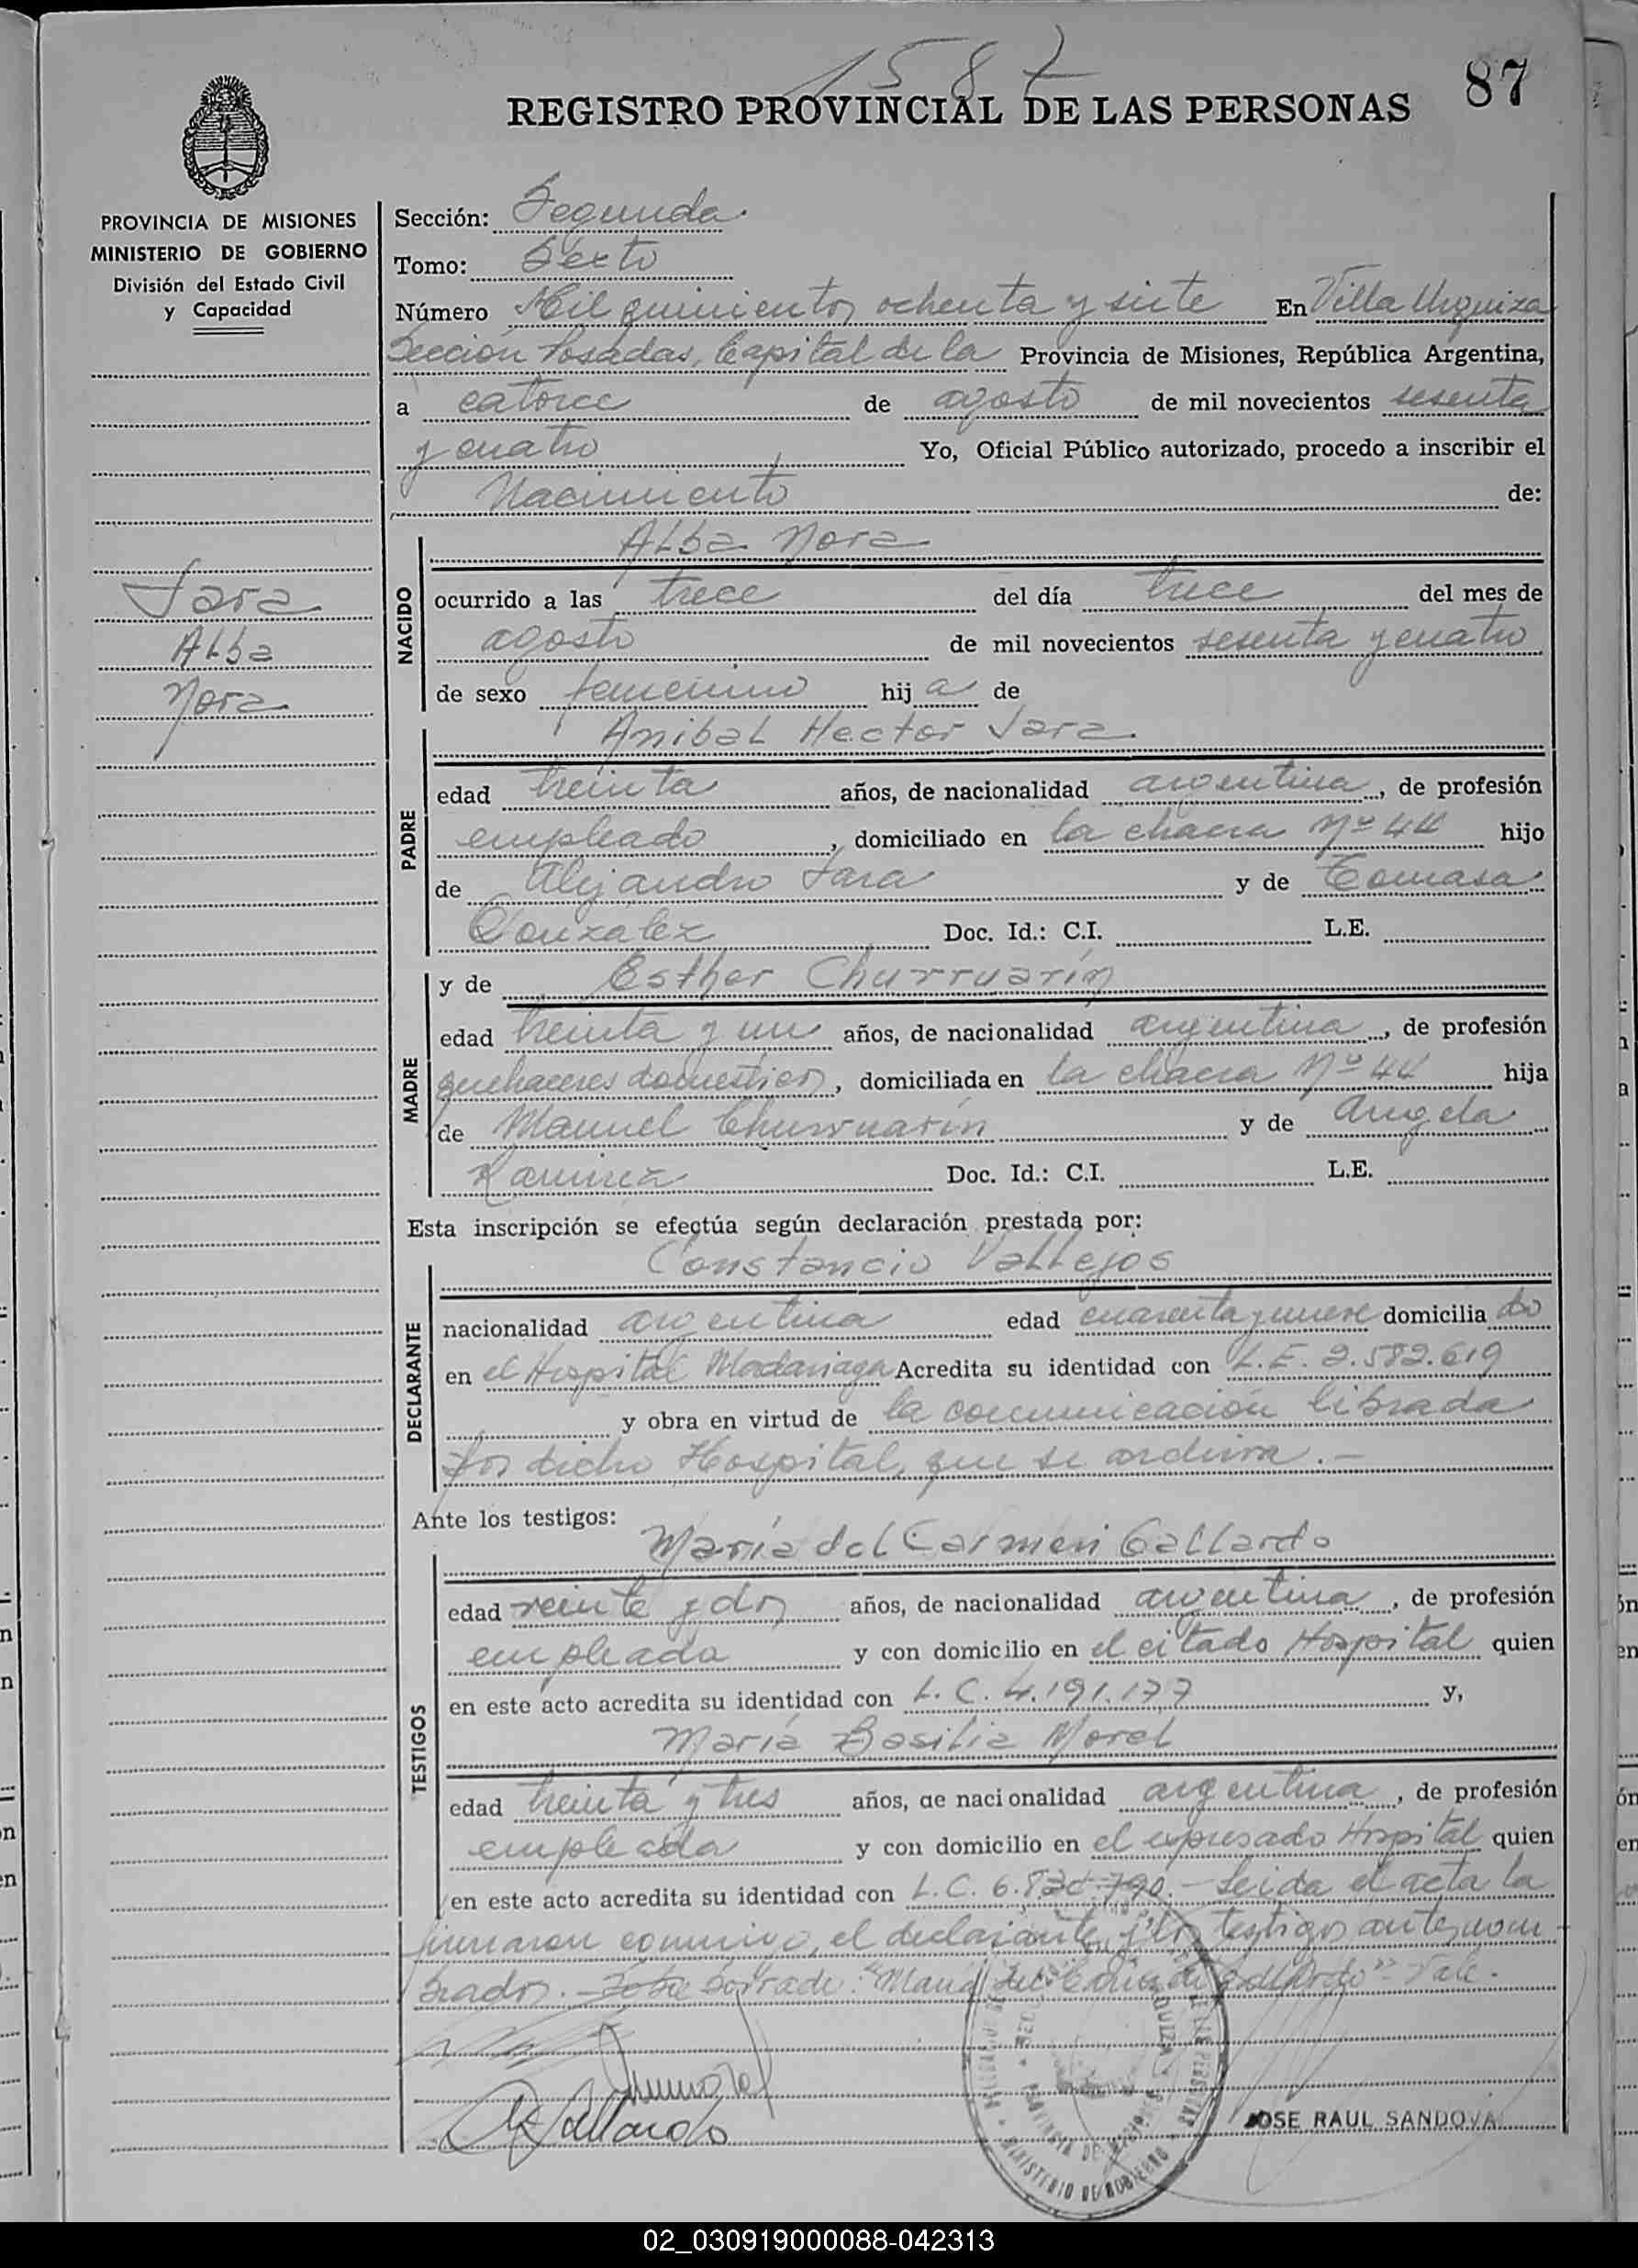 1587
87
REGISTRO PROVINCIAL DE LAS PERSONAS
PROVINCIA DE MISIONES
MINISTERIO DE GOBIERNO
División del Estado Civil
y Capacidad
Jara
Alba
Nora
Sección: Segunda
Tomo: Sexto
Número Mil quinientos ochenta y siete En Villa Urquiza
Sección Posadas, Capital de la Provincia de Misiones, República Argentina,
a catorce de agosto de mil novecientos sesenta
y cuatro Yo, Oficial Público autorizado, procedo a inscribir el
Nacimiento de:
NACIDO
Alba Nora
ocurrido a las trece del día trece del mes de
agosto de mil novecientos sesenta y cuatro
de sexo femenino hija de
PADRE
Anibal Hector Jara
edad treinta años, de nacionalidad argentina, de profesión
empleado, domiciliado en la chacra Nº 44 hijo
de Alejandro Jara y de Tomasa
González Doc. Id.: C.I. L.E.
MADRE
y de Esther Churruarín
edad treinta y un años, de nacionalidad argentina, de profesión
quehaceres domésticos, domiciliada en la chacra Nº 44 hija
de Manuel Churruarín y de Angela
Ramirez Doc. Id.: C.I. L.E.
Esta inscripción se efectúa según declaración prestada por:
DECLARANTE
Constancio Vallejos
nacionalidad argentina edad cuarenta y nueve domiciliado
en el Hospital Madariaga Acredita su identidad con L.E. 2.582.619
y obra en virtud de la comunicación librada
por dicho Hospital, que se archiva.-
Ante los testigos:
TESTIGOS
María del Carmen Gallardo
edad veinte y dos años, de nacionalidad argentina, de profesión
empleada y con domicilio en el citado Hospital quien
en este acto acredita su identidad con L.C. 4.191.177 y,
María Basilia Morel
edad treinta y tres años, de nacionalidad argentina, de profesión
empleada y con domicilio en el expresado Hospital quien
en este acto acredita su identidad con L.C. 6.- Leida el acta la
firmaron conmigo, el declarante y los testigos antes nom
brados.- Sobre borrado: "María del Gallardo"- Vale.
Gallardo
MINISTERIO DE GOBIERNO
JOSE RAUL SANDOVAL
02_030919000088-042313